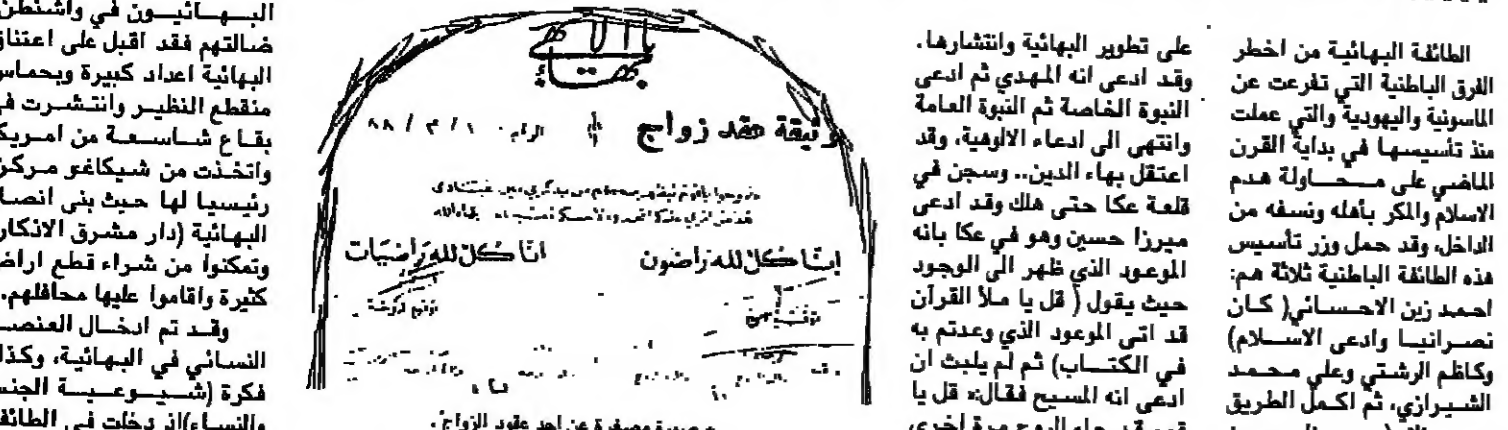 الطائفة البهائية من اخطر
الفرق الباطنية التي تفرعت عن
الماسونية واليهودية والتي عملت
منذ تأسيسها في بداية القرن
الماضي على محاولة هدم
الاسلام والمكر بأهله ونسفه من
الداخل، وقد حمل وزر تأسيس
هذه الطائفة الباطنية ثلاثة هم:
احمد زين الاحسائي( كان
نصرانيا وادعى الاسلام)
وكاظم الرشتي وعلي محمد
الشيرازي، ثم اكمل الطريق
على تطوير البهائية وانتشارها.
وقد ادعى انه المهدي ثم ادعى
النبوة الخاصة ثم النبوة العامة
وانتهى الى ادعاء الالوهية، وقد
اعتقل بهاء الدين.. وسجن في
قلعة عكا حتى هلك وقد ادعى
ميرزا حسين وهو في عكا بانه
الموعود الذي ظهر الى الوجود
حيث يقول ( قل يا ملأ القرآن
قد اتى الموعود الذي وعدتم به
في الكتاب) ثم لم يلبث ان
ادعى انه المسيح فقال:« قل يا
قوم قد جاء الروح مرة اخرى
وثيقة عقد زواج
انا كل لله راضون
انا كل لله راضيات
توقيع الزوجة
صورة مصغرة عن احد عقود الزواج.
البهائيون في واشنطن
ضالتهم فقد اقبل على اعتناق
البهائية اعداد كبيرة وبحماس
منقطع النظير وانتشرت في
بقاع شاسعة من امريكا
واتخذت من شيكاغو مركزا
رئيسيا لها حيث بنى انصار
البهائية (دار مشرق الاذكار)
وتمكنوا من شراء قطع اراض
كثيرة واقاموا عليها محافلهم.
وقد تم ادخال العنصر
النسائي في البهائية، وكذلك
فكرة (شيوعية الجنس
والنساء)اذ دخلت في الطائفة